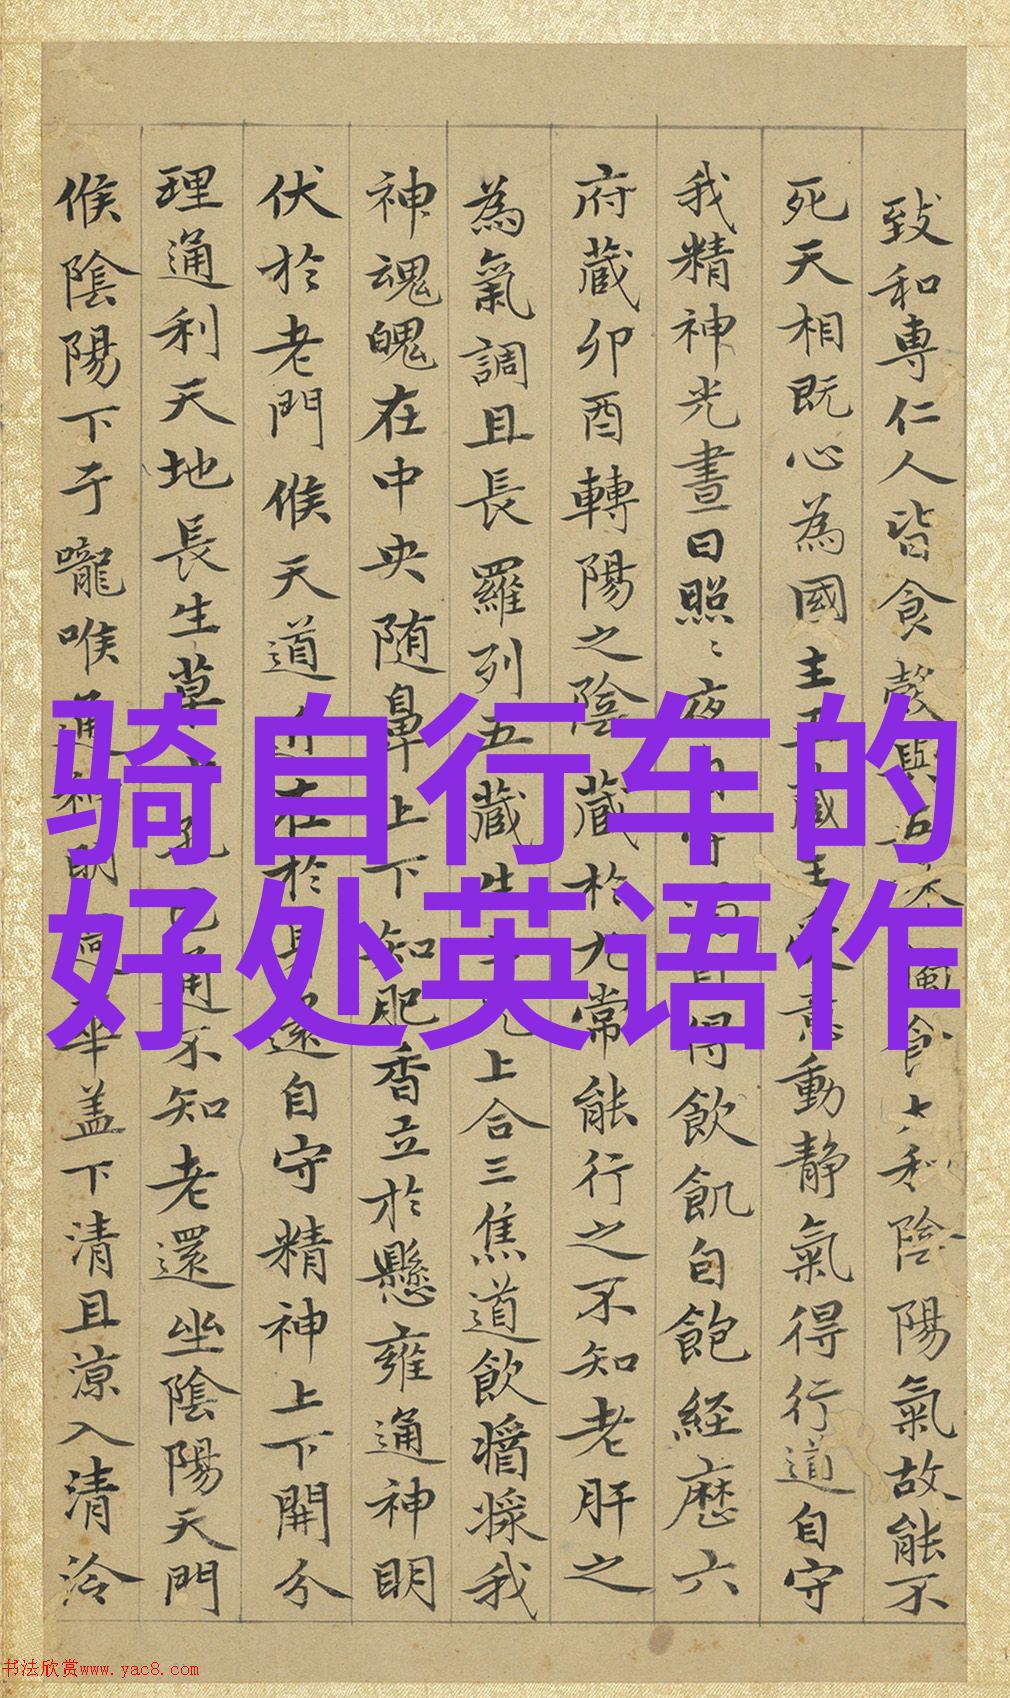 致和專仁人皆食
死天相既心為國主五藏主
意動靜氣得行道自守
我精神光晝日照〻夜
得飲飢自飽經歷六
府藏卯酉轉陽之陰藏於九常能行之不知老肝之
為氣調且長羅列五藏生
上合三焦道飲醬漿我
神魂魄在中央随鼻上下知肥香立於懸雍通神明
伏於老門候天道
在於
還自守精神上下開分
理通利天地長生草
通不知老還坐陰陽天門
候陰陽下于嚨喉通
華盖下清且涼入清泠
與五
食太和陰陽氣故能不
骑自行车的
好处英语作
书法欣赏www.yac8.com